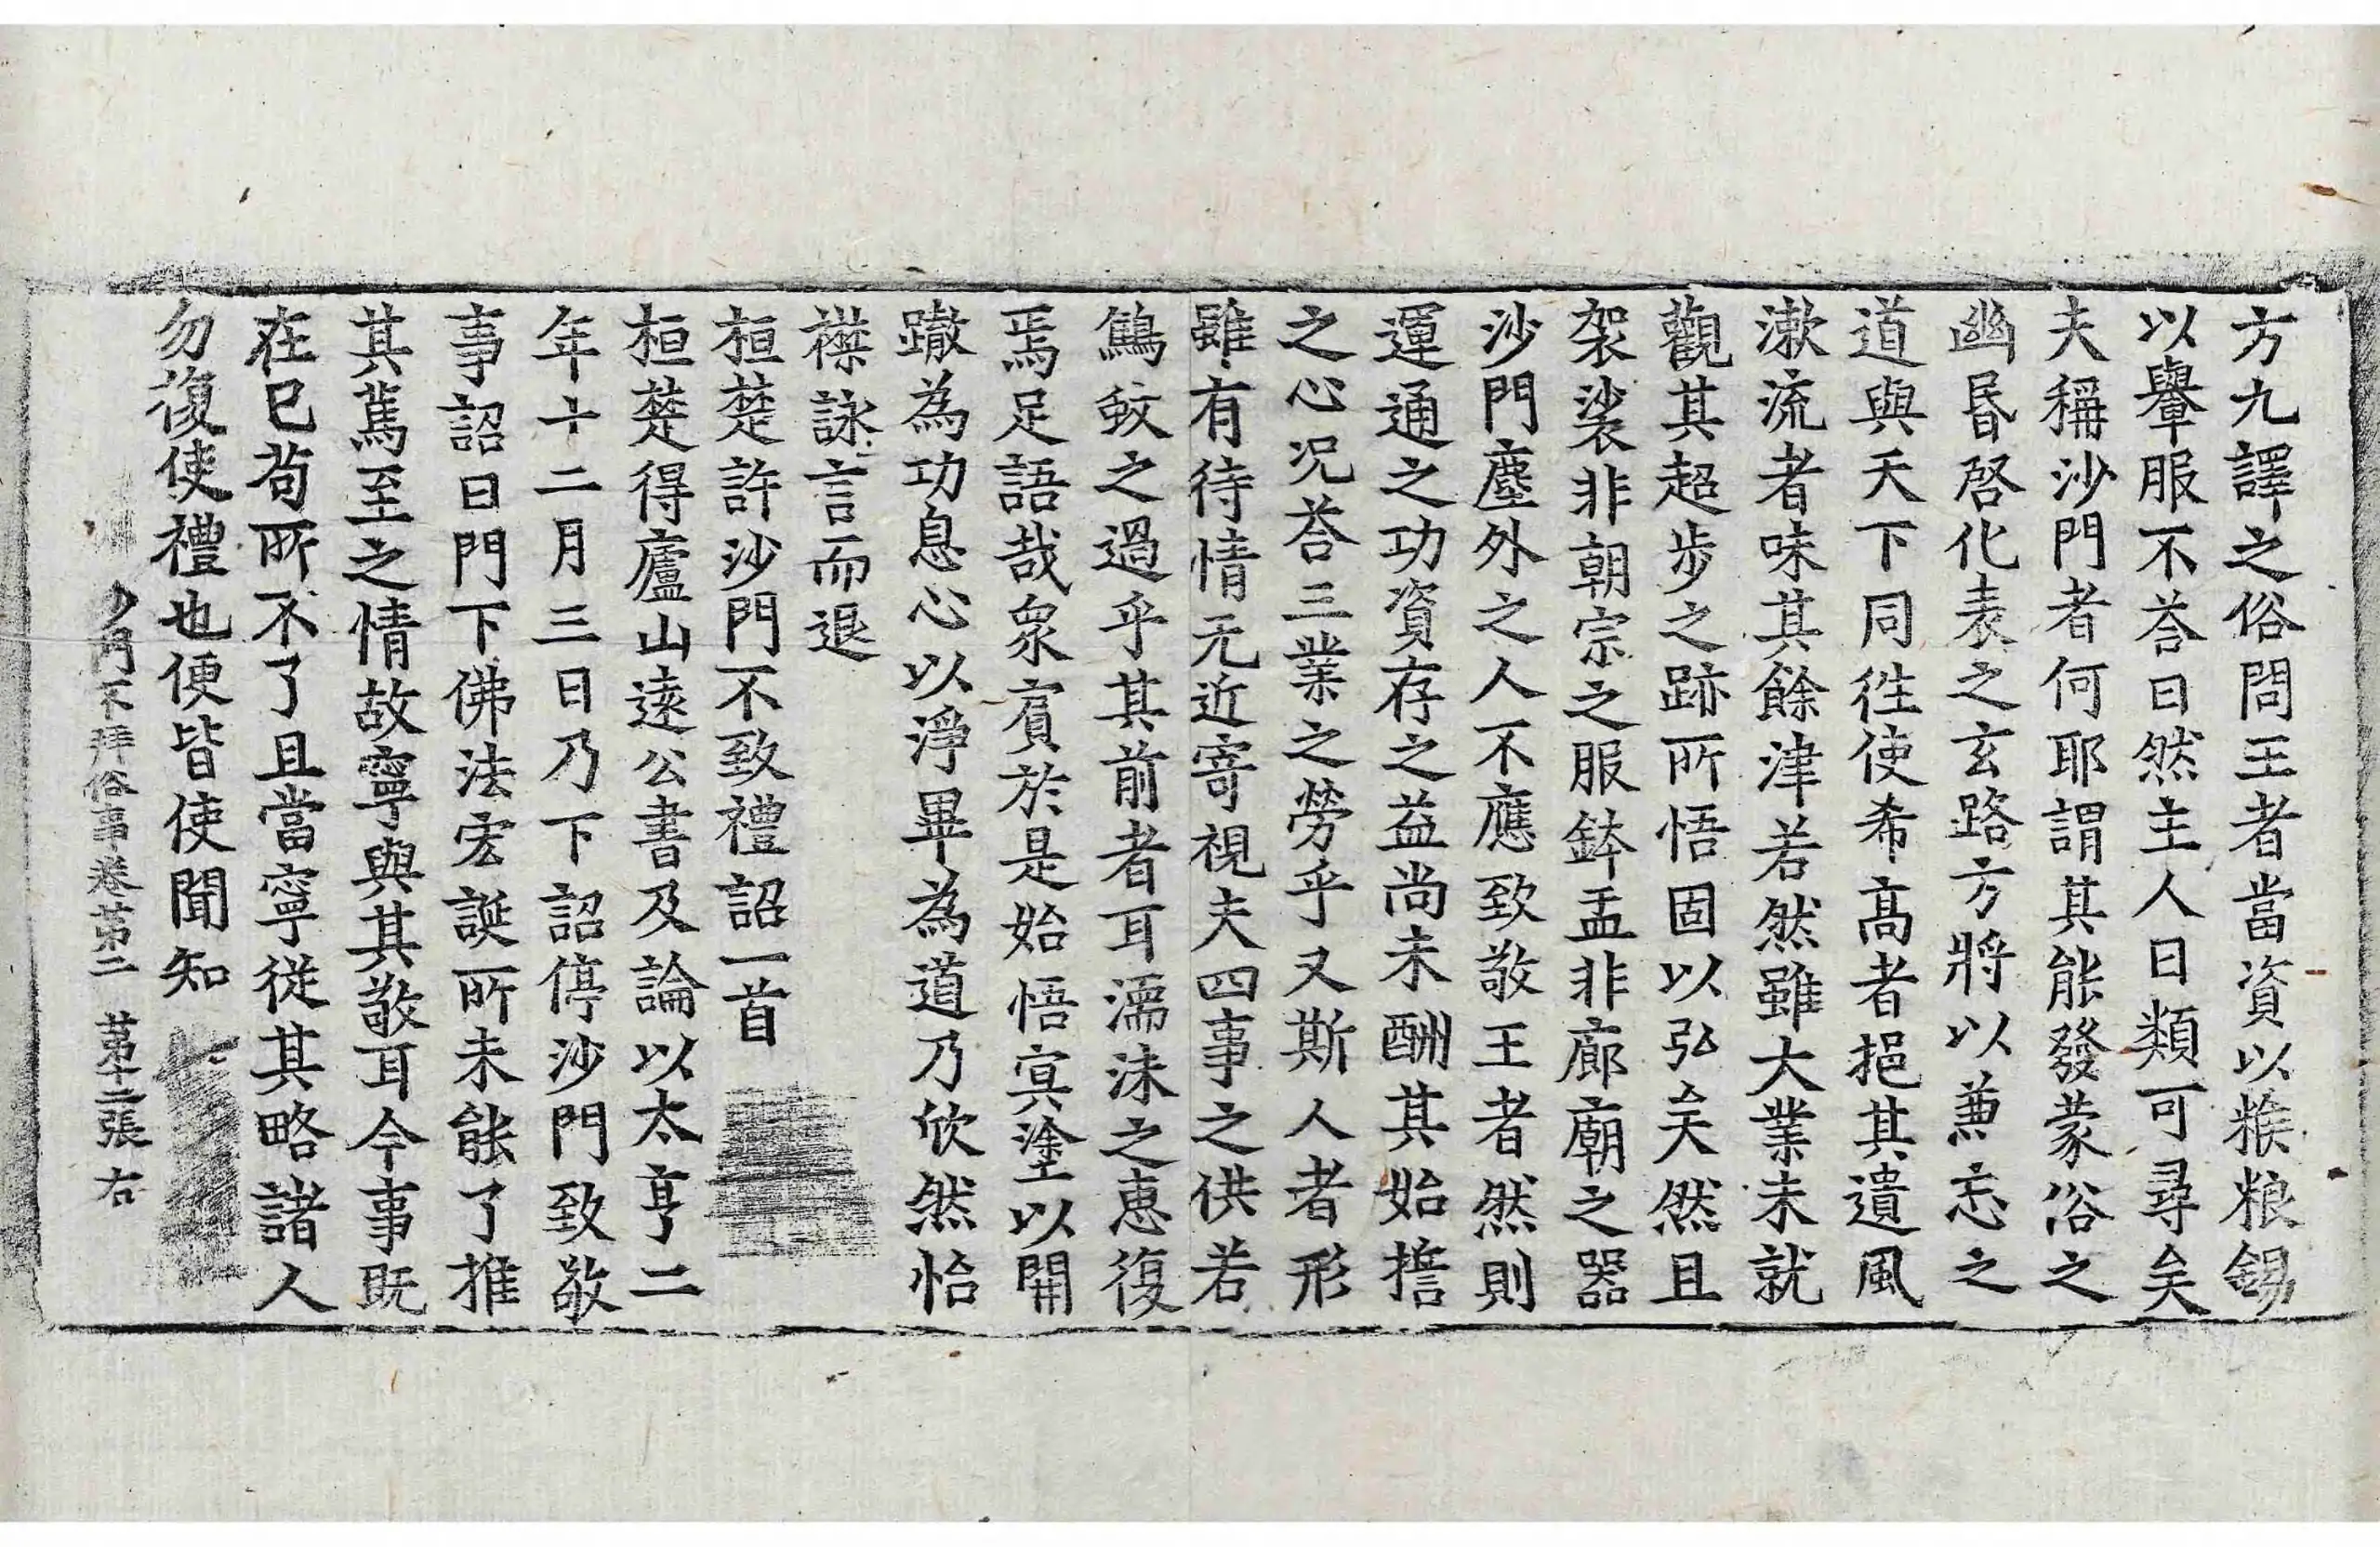 方九譯之俗問王者當資以糇粮錫
以轝服不荅曰然主人曰類可尋矣
夫稱沙門者何耶謂其能發蒙俗之
幽昬啓化表之玄路方將以兼忘之
道與天下同徃使希高者挹其遺風
漱流者味其餘津若然雖大業未就
觀其超步之跡所悟固以弘矣然且
袈裟非朝宗之服鉢盂非廊廟之器
沙門塵外之人不應致敬王者然則
運通之功資存之益尚未酬其始擔
之心況荅三業之勞乎又斯人者形
雖有待情无近寄視夫四事之供若
鷦蚊之過乎其前者耳濡沫之惠復
焉足語哉衆賓於是始悟㝠塗以開
轍為功息心以淨畢為道乃欣然怡
襟詠言而退
桓楚許沙門不致禮詔一首
桓楚得廬山遠公書及論以太亨二
年十二月三日乃下詔停沙門致敬
事詔曰門下佛法宏誕所未能了推
其篤至之情故寧與其敬耳今事既
在已苟所不了且當寧從其略諸人
勿復使禮也便皆使聞知
沙門不拜俗事卷第二 第十二張 右